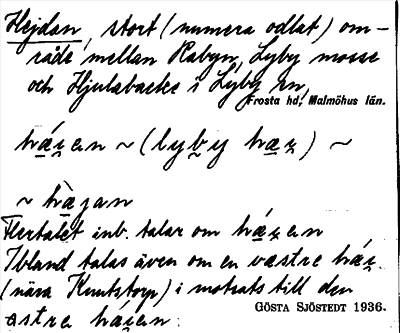 Hejdan, stort (numera odlat) om-
råde mellan Rabyn, Lyby mosse
och Hjulabacke i Lyby sn,
Frosta hd, Malmöhus län.
~ (lyby
~
Flertalet inb. talar om
Ibland talas även om en västre
(nära Knutstorp) i motsats till den
östre
GÖSTA SJÖSTEDT 1936.